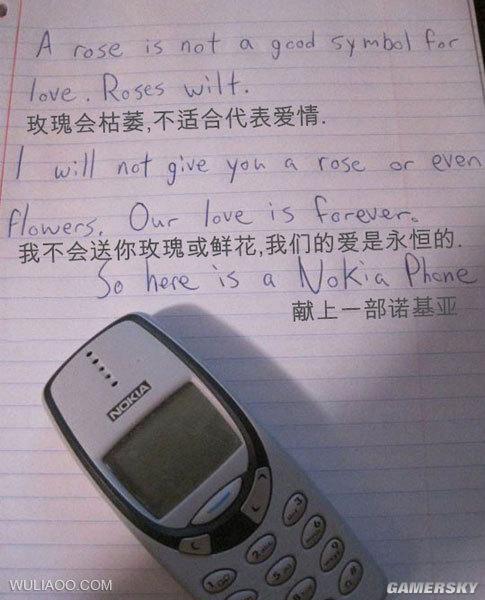 A rose is not a good symbol for
love. Roses wilt.
玫瑰会枯萎,不适合代表爱情.
I will not give you a rose or even
flowers. Our love is forever.
我不会送你玫瑰或鲜花,我们的爱是永恒的.
So here is a Nokia Phone
献上一部诺基亚
NOKIA
WULIAOO.COM
GAMERSKY